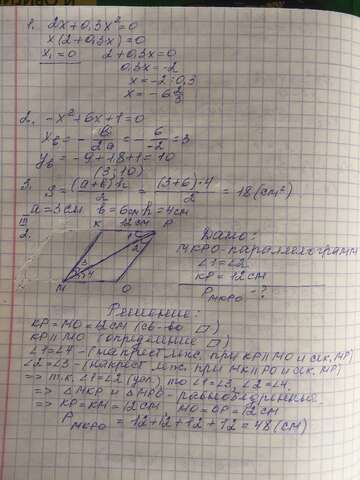 1. 2x+0,3x²=0
x(2+0,3x)=0
x₁=0 2+0,3x=0
0,3x=-2
x=-2:0,3
x=-6 2/3
2. -x²+6x+1=0
xв=-b/2a=-6/-2=3
yв=-9+18+1=10
(3;10)
3. S=(a+b)·h/2=(3+6)·4/2=18(см²)
a=3см b=6см h=4см
III
2. K 12см P
1 2 3 4
M O
Дано:
MKPO-параллелограмм
∠1=∠2
KP=12см
P MKPO -?
Решение:
KP=MO=12см (св-во ▱)
KP||MO (определение ▱)
∠1=∠4-(накрест леж. при KP||MO и сек. MP)
∠2=∠3-(накрест леж. при MK||PO и сек. MP)
=> т.к. ∠1=∠2 (усл.), то ∠1=∠3, ∠2=∠4.
=> △MKP и △MPO-равнобедренные
=> KP=KM=12см, MO=OP=12см
P MKPO =12+12+12+12=48(см)